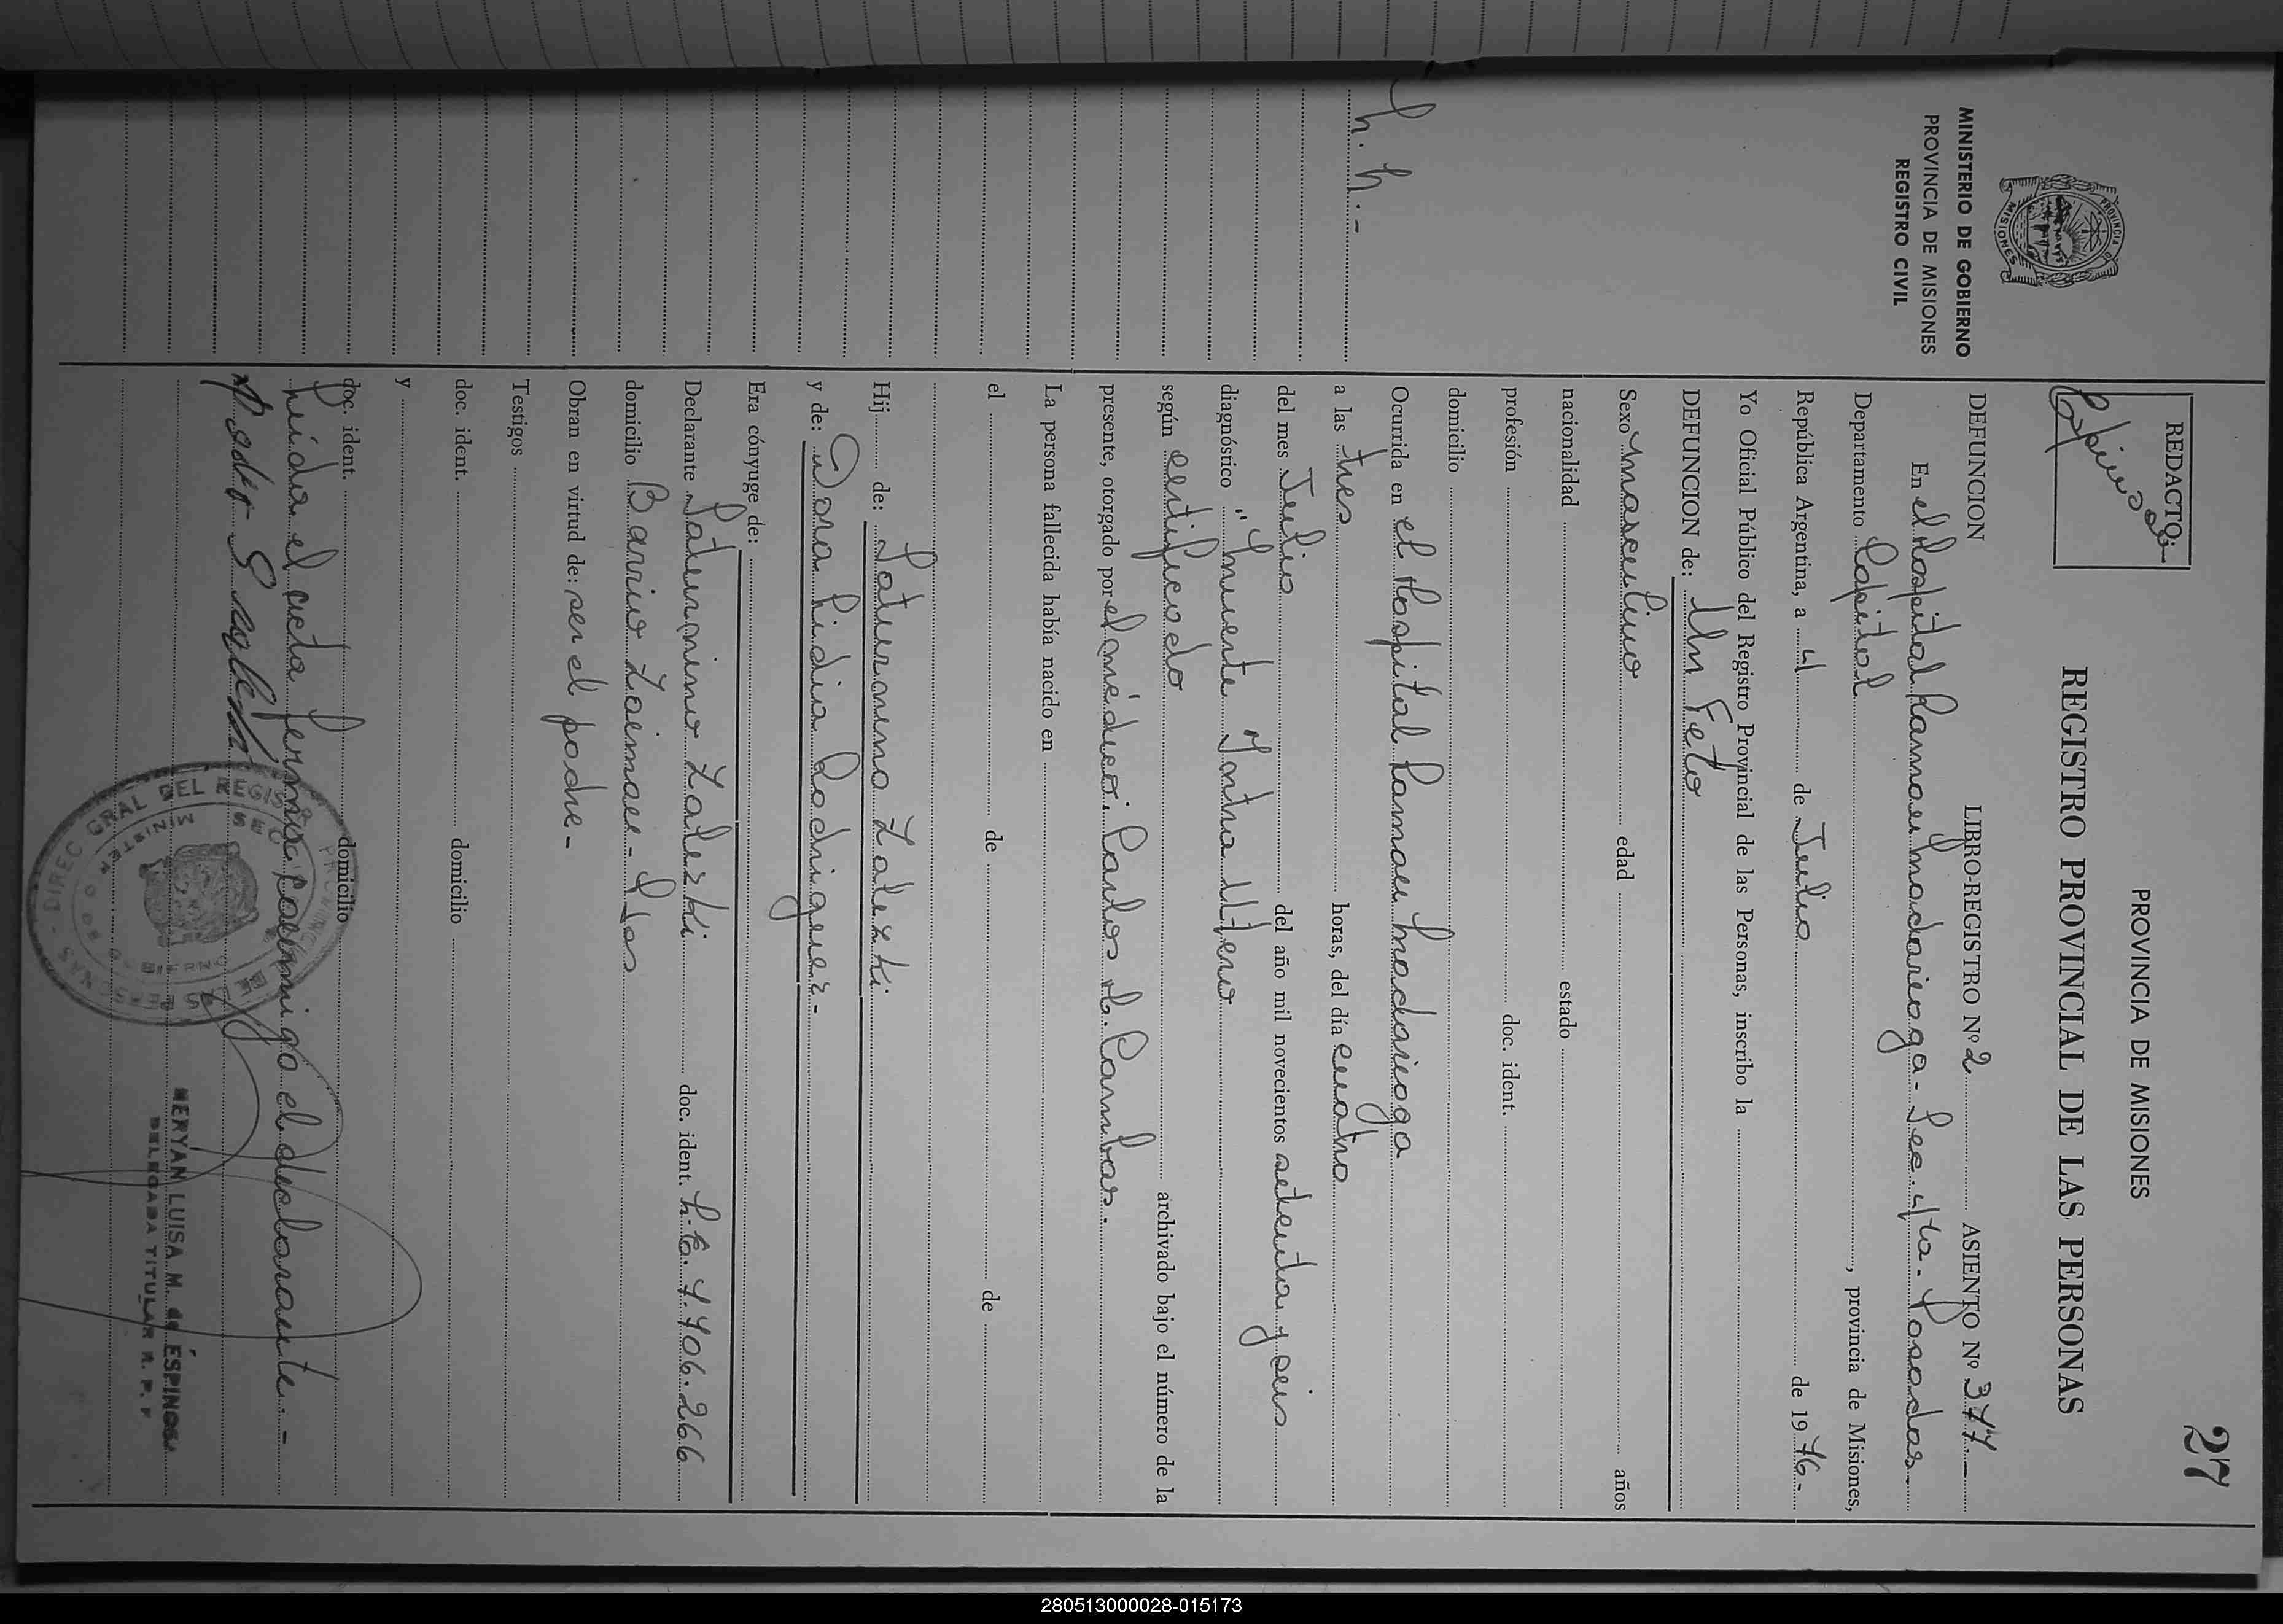 27
PROVINCIA DE MISIONES
REGISTRO PROVINCIAL DE LAS PERSONAS
REDACTO:
Espinosa
PROVINCIA D MISIONES
MINISTERIO DE GOBIERNO
PROVINCIA DE MISIONES
REGISTRO CIVIL
N. N. -
DEFUNCION LIBRO-REGISTRO Nº 2 ASIENTO Nº 377.-
En el Hospital Ramon Madariaga - Sec. 4ta - Posadas -
Departamento Capital, provincia de Misiones,
República Argentina, a 4 de Julio de 1976-
Yo Oficial Público del Registro Provincial de las Personas, inscribo la
DEFUNCION de: Un Feto
Sexo masculino edad años
nacionalidad estado
profesión doc. ident.
domicilio
Ocurrida en el Hospital Ramon Madariaga
a las tres horas, del día cuatro
del mes Julio del año mil novecientos setenta y seis
diagnóstico "muerte Intra Utero
según certificado archivado bajo el número de la
presente, otorgado por el médico. Carlos H. Cambas.
La persona fallecida había nacido en
el de de
Hij de: Saturnino Zaleski
y de: Dora Lidia Rodriguez.-
Era cónyuge de:
Declarante Saturnino Zaleski doc. ident. L.E. 7.706.266
domicilio Barrio - Pdas
Obran en virtud de: ser el padre -
Testigos
doc. ident. domicilio
y
doc. ident. domicilio
Leida el acta firma conmigo el declarante. -
DIREC GRAL DEL REGIS
PROVINC
MERYAN LUISA M. de ESPINOSA
DELEGADA TITULAR R. P. P
280513000028-015173